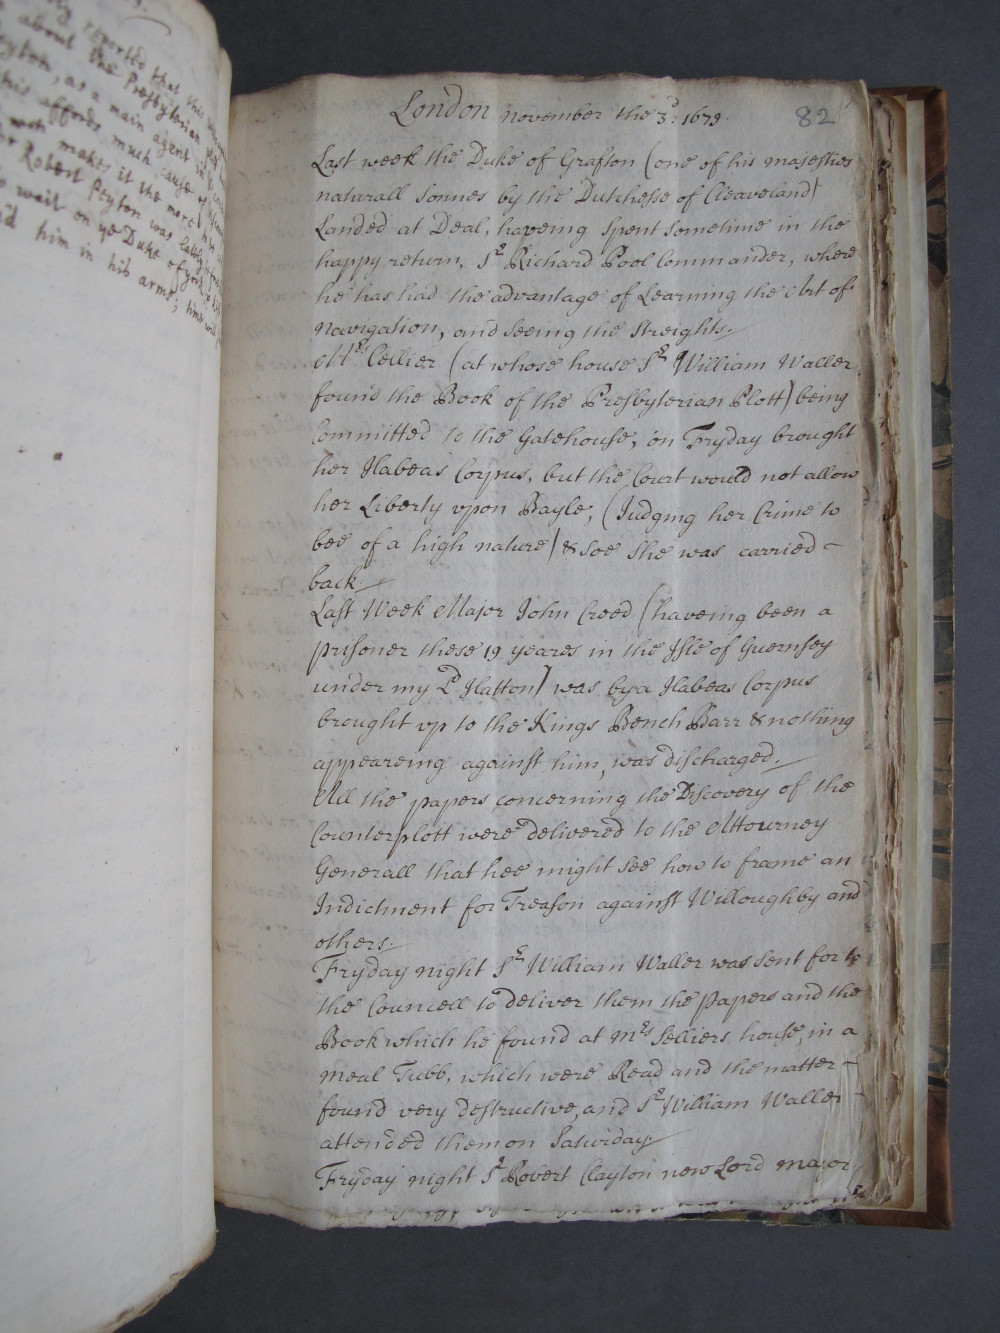 reported that this
about the Presbyterian
Peyton, as a main agent in
this affords much cause of
makes it the more
Robert Peyton was lately
wait on ye Duke of york,
him in his arms;
London november the 3d: 1679.
82
Last week the Duke of Grafton (one of his majesties
naturall Sonnes by the Dutchesse of Cleaveland)
Landed at Deal, haveing Spent Sometime in the
happy return, Sr Richard Pool Commander, where
he has had the advantage of Learning the Art of
Navigation, and Seeing the Streights.
Mrs Cellier (at whose house Sr William Waller
found the Book of the Presbyterian Plott) being
Committed to the Gatehouse, on Fryday brought
her Habeas Corpus, but the Court would not allow
her Liberty upon Bayle, (Judging her Crime to
bee of a high nature) & Soe She was carried
back.
Last Week Major John Creed (haveing been a
prisoner these 19 yeares in the Isle of Guernsey
under my Ld Hatton) was by a Habeas Corpus
brought vp to the Kings Bench Barr & nothing
appeareing against him, was discharged.
All the papers concerning the Discovery of the
Counterplott were delivered to the Attourney
Generall that hee might See how to frame an
Indictment for Treason against Willoughby and
others.
Fryday night Sr William Waller was Sent for to
the Councell to deliver them the Papers and the
Book which he found at Mrs Selliers house, in a
meal Tubb, which were Read and the matter
found very destructive, and Sr William Waller
attended them on Saturday.
Fryday night Sr Robert Clayton new Lord major